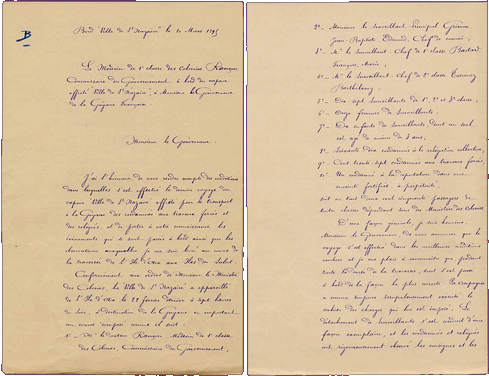 B
Bord "Ville de St Nazaire" le 10 Mars 1895
Le Médecin de 1e classe des Colonies Rançon
Commissaire du Gouvernement à bord du vapeur
affrété "Ville de St Nazaire", à Monsieur le Gouverneur
de la Guyane Française.
Monsieur le Gouverneur.
J'ai l'honneur de vous rendre compte des conditions
dans lesquelles s'est effectué le dernier voyage du
vapeur "Ville de St Nazaire" affrété pour le transport
à la Guyane des condamnés aux travaux forcés et
des relégués, et de porter à votre connaissance les
évènements qui se sont passés à bord ainsi que les
dans le cours de
la traversée de l'Ile d'Aix aux Iles du Salut.
Conformément aux ordres de Monsieur le Ministre
des Colonies, la "Ville de St Nazaire" a appareillé
de l'Ile d'Aix le 22 février dernier à sept heures
du soir, à destination de la Guyane et emportant
un convoi composé comme il suit:
1° - Mr le docteur Rançon Médecin de 1e classe
des Colonies, Commissaire du Gouvernement,
2° - Monsieur le Surveillant Principal
Jean-Baptiste Edmond, Chef de convoi,
3° - Mr le Surveillant Chef de 1e classe
François, Marie,
4° - Mr le Surveillant Chef de 2e classe
Barthélemy,
5° - Dix-sept Surveillants de 1e, 2e et 3e classe,
6° - Onze femmes de Surveillants,
7° - Dix enfants de Surveillants dont un seul
est âgé de moins de 3 ans,
8° - Soixante dix condamnés à la relégation collective,
9° - Cent trente sept condamnés aux travaux forcés,
10° - Un condamné à la déportation dans une
enceinte fortifiée, à perpétuité.
soit en tout deux cent cinquante passagers de
toutes classes dépendant tous du Ministère des Colonies
D'une façon générale, je suis heureux
Monsieur le Gouverneur, de vous annoncer que le
voyage s'est effectué dans les meilleures conditions
et je me plais à reconnaître que pendant
toute la durée de la traversée, tout s'est passé
à bord de la façon la plus correcte. La Compagnie
a comme toujours scrupuleusement exécuté le
cahier des charges qui lui est imposé. Le
détachement de Surveillants s'est conduit d'une
façon exemplaire, et les condamnés et relégués
ont rigoureusement observé les consignes et les